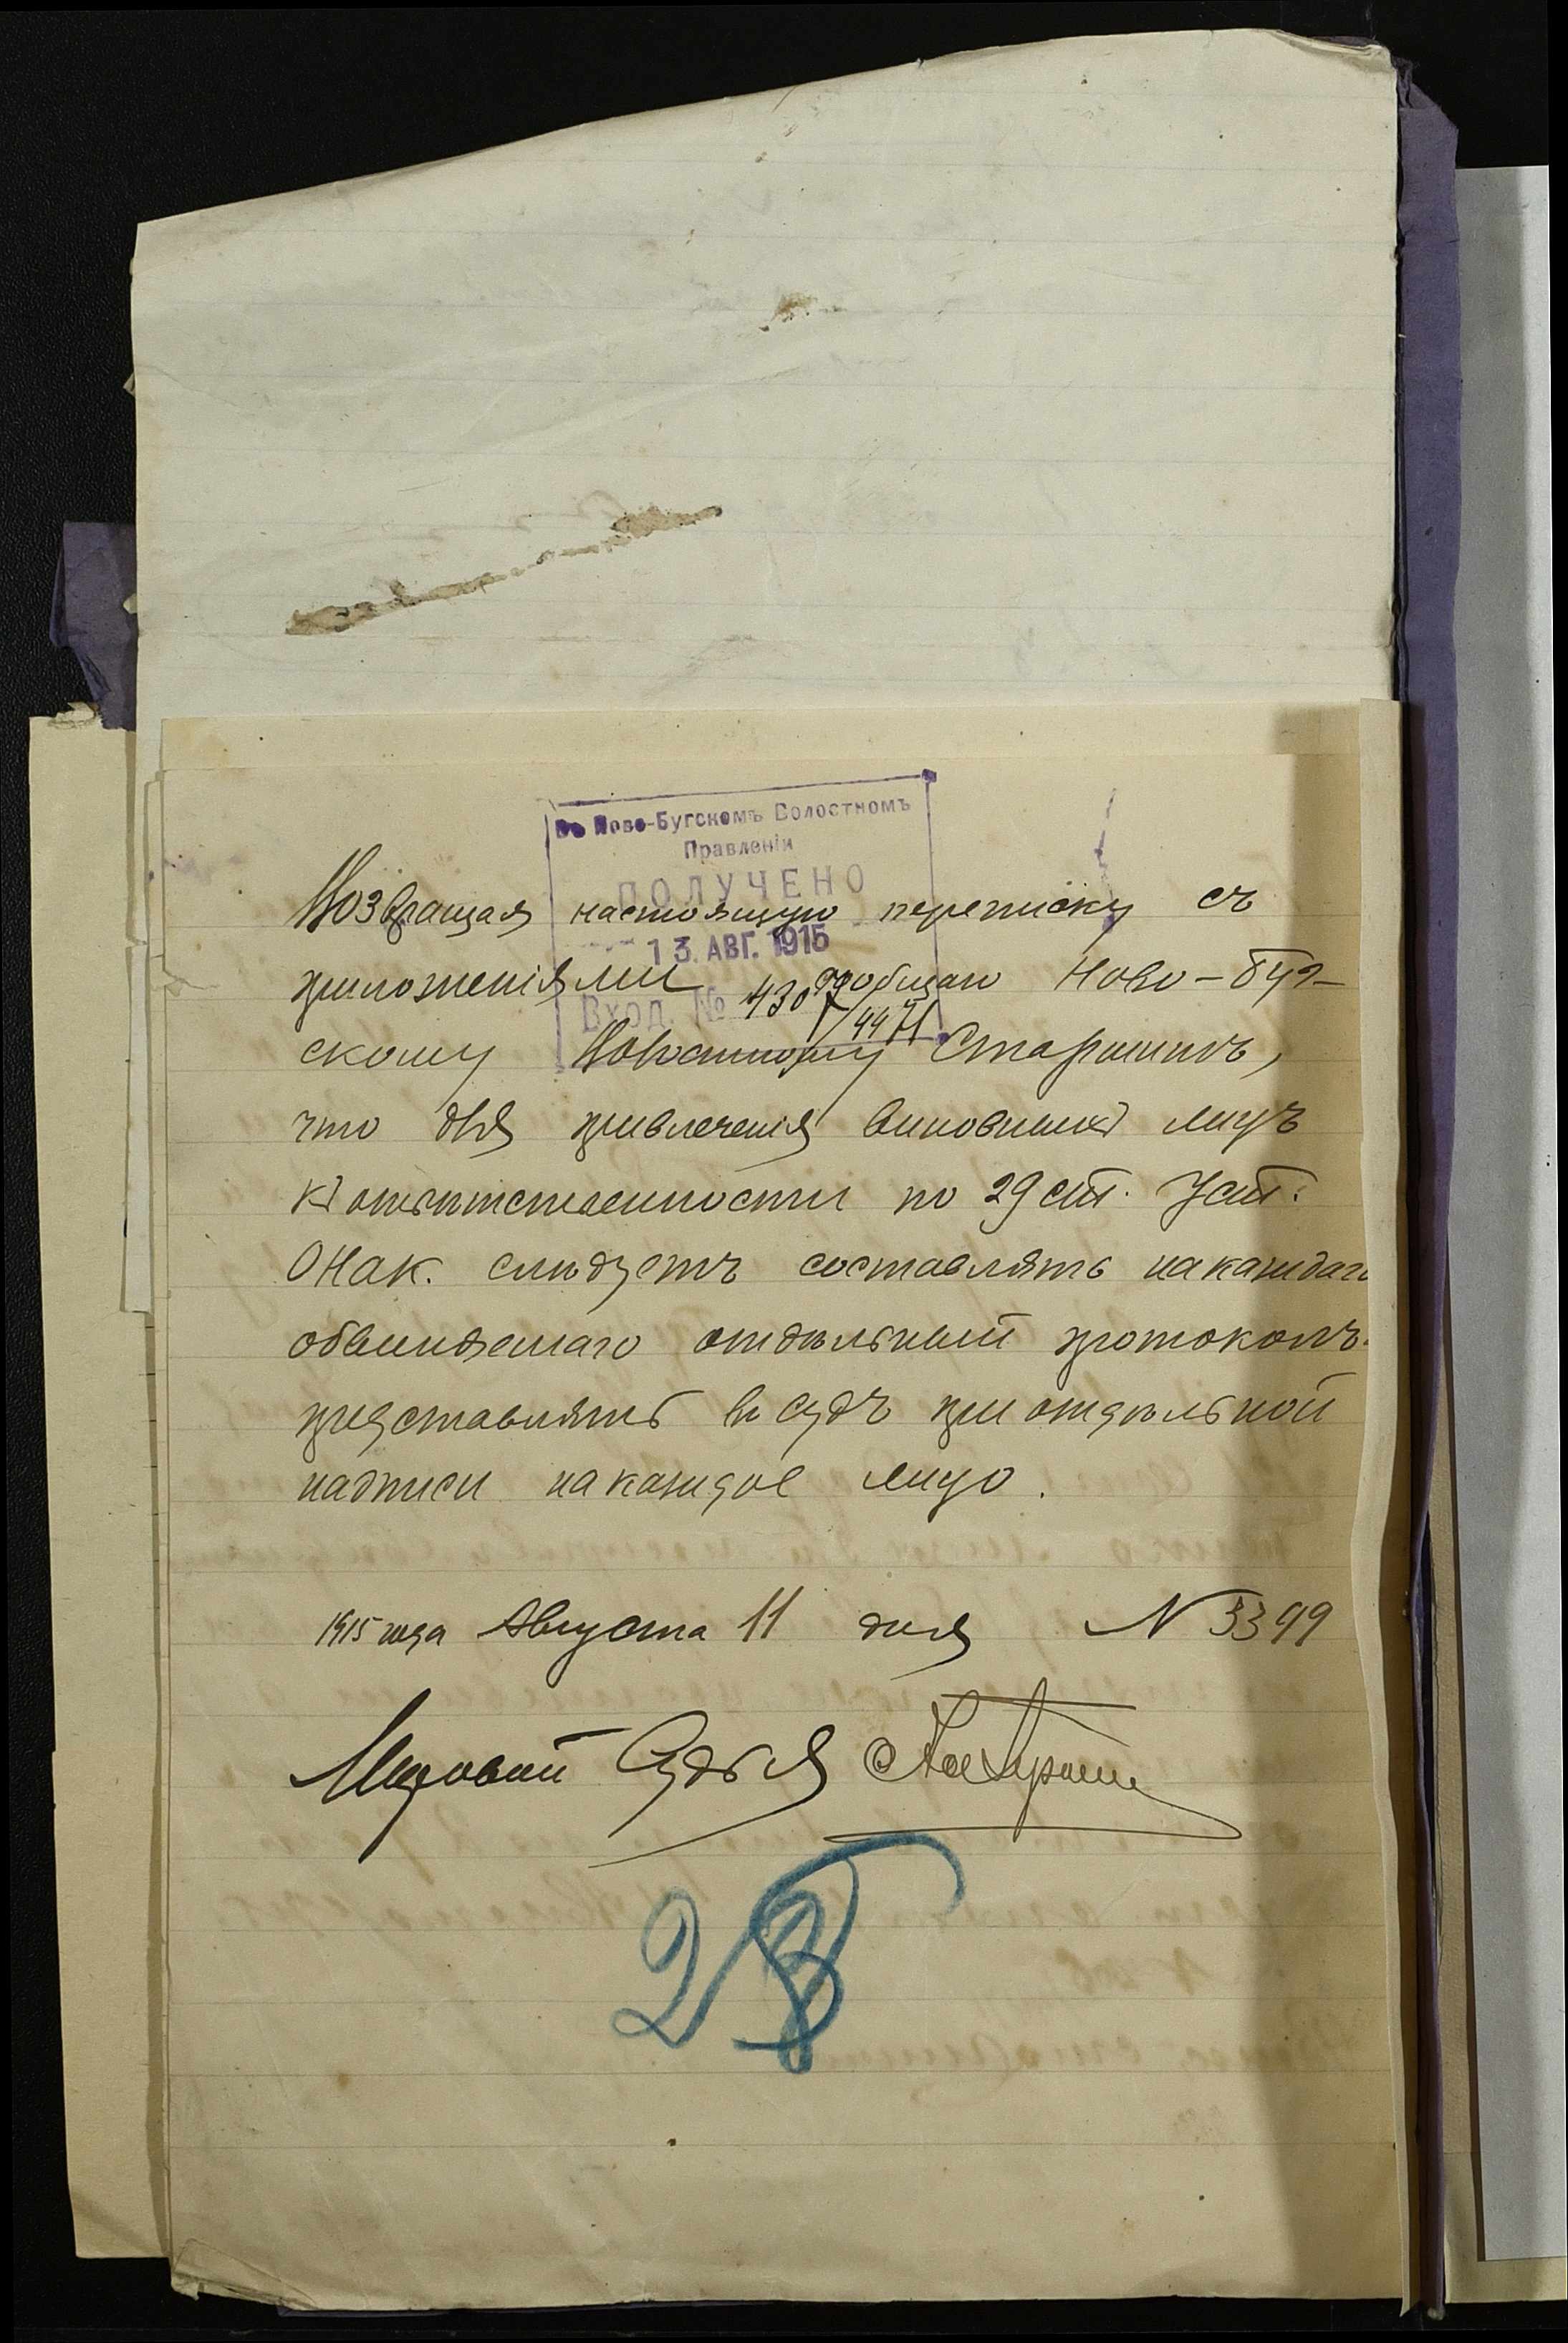 Въ Ново-Бугскомъ Волостномъ
Правленіи
ПОЛУЧЕНО
13. АВГ. 1915
Вход. № 4307/4471
Возвращая настоящую переписку съ
приложеніями сообщаю Ново-Буг-
скому Волостному Старшинѣ,
что для привлеченія виновныхъ лицъ
къ отвѣтственности по 29 ст. Уст.
О Нак. слѣдуетъ составлять на каждаго
обвиняемаго отдѣльный протоколъ
представлять въ судъ при отдѣльной
надписи на каждое лицо.
1915 года Августа 11 дня N 3399
Мировой Судья
28